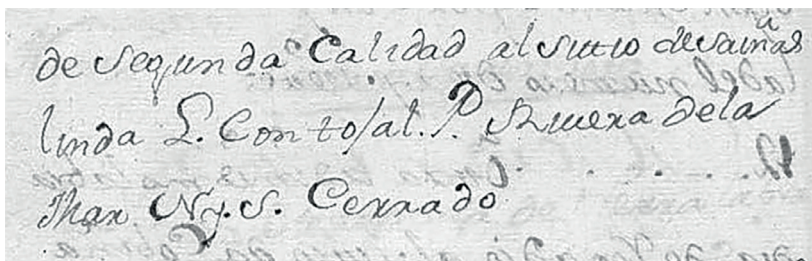 de segunda Calidad al sitio de
linda L. Con tojal. P. Rivera dela
Mar N. y. S. Cerrado